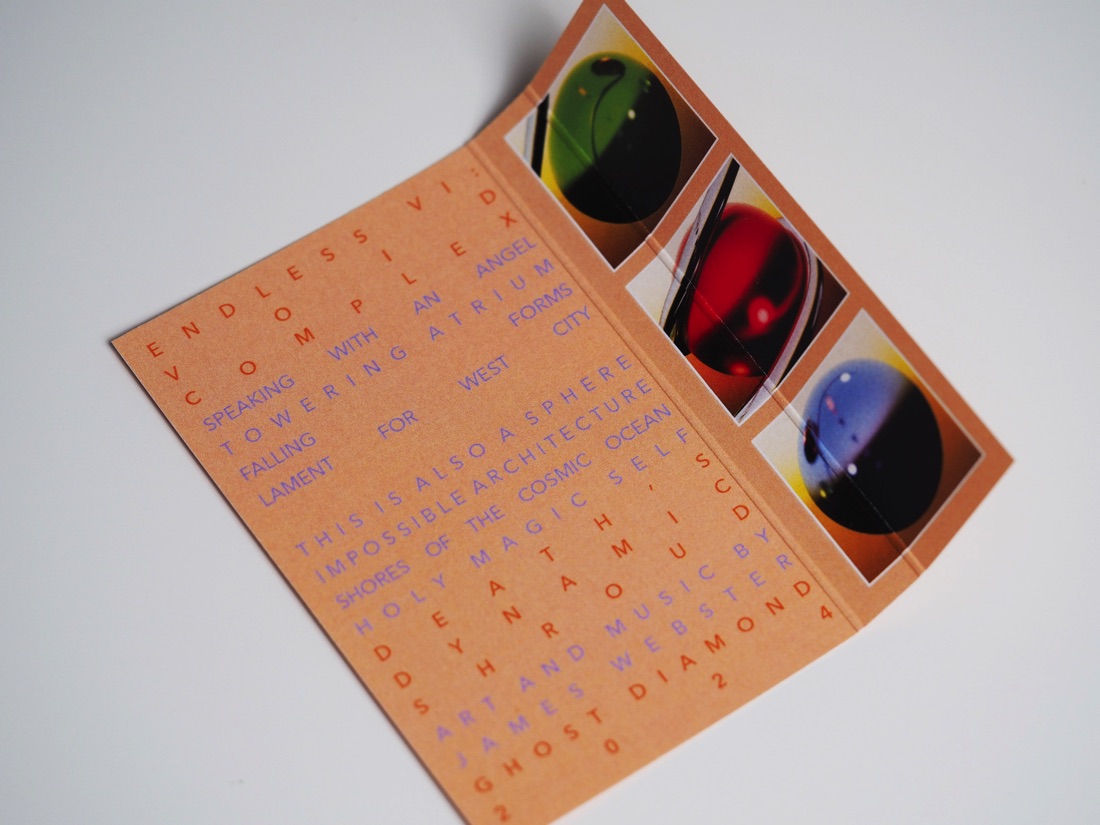 ENDLESS VI:
VOID
COMPLEX
SPEAKING WITH AN ANGEL
TOWERING ATRIUM
FALLING FORMS
LAMENT FOR WEST CITY
THIS IS ALSO A SPHERE
IMPOSSIBLE ARCHITECTURE
SHORES OF THE COSMIC OCEAN
HOLY MAGIC SELF
DEATH'S
DYNAMIC
SHROUD
ART AND MUSIC BY
JAMES WEBSTER
GHOST DIAMOND
2024